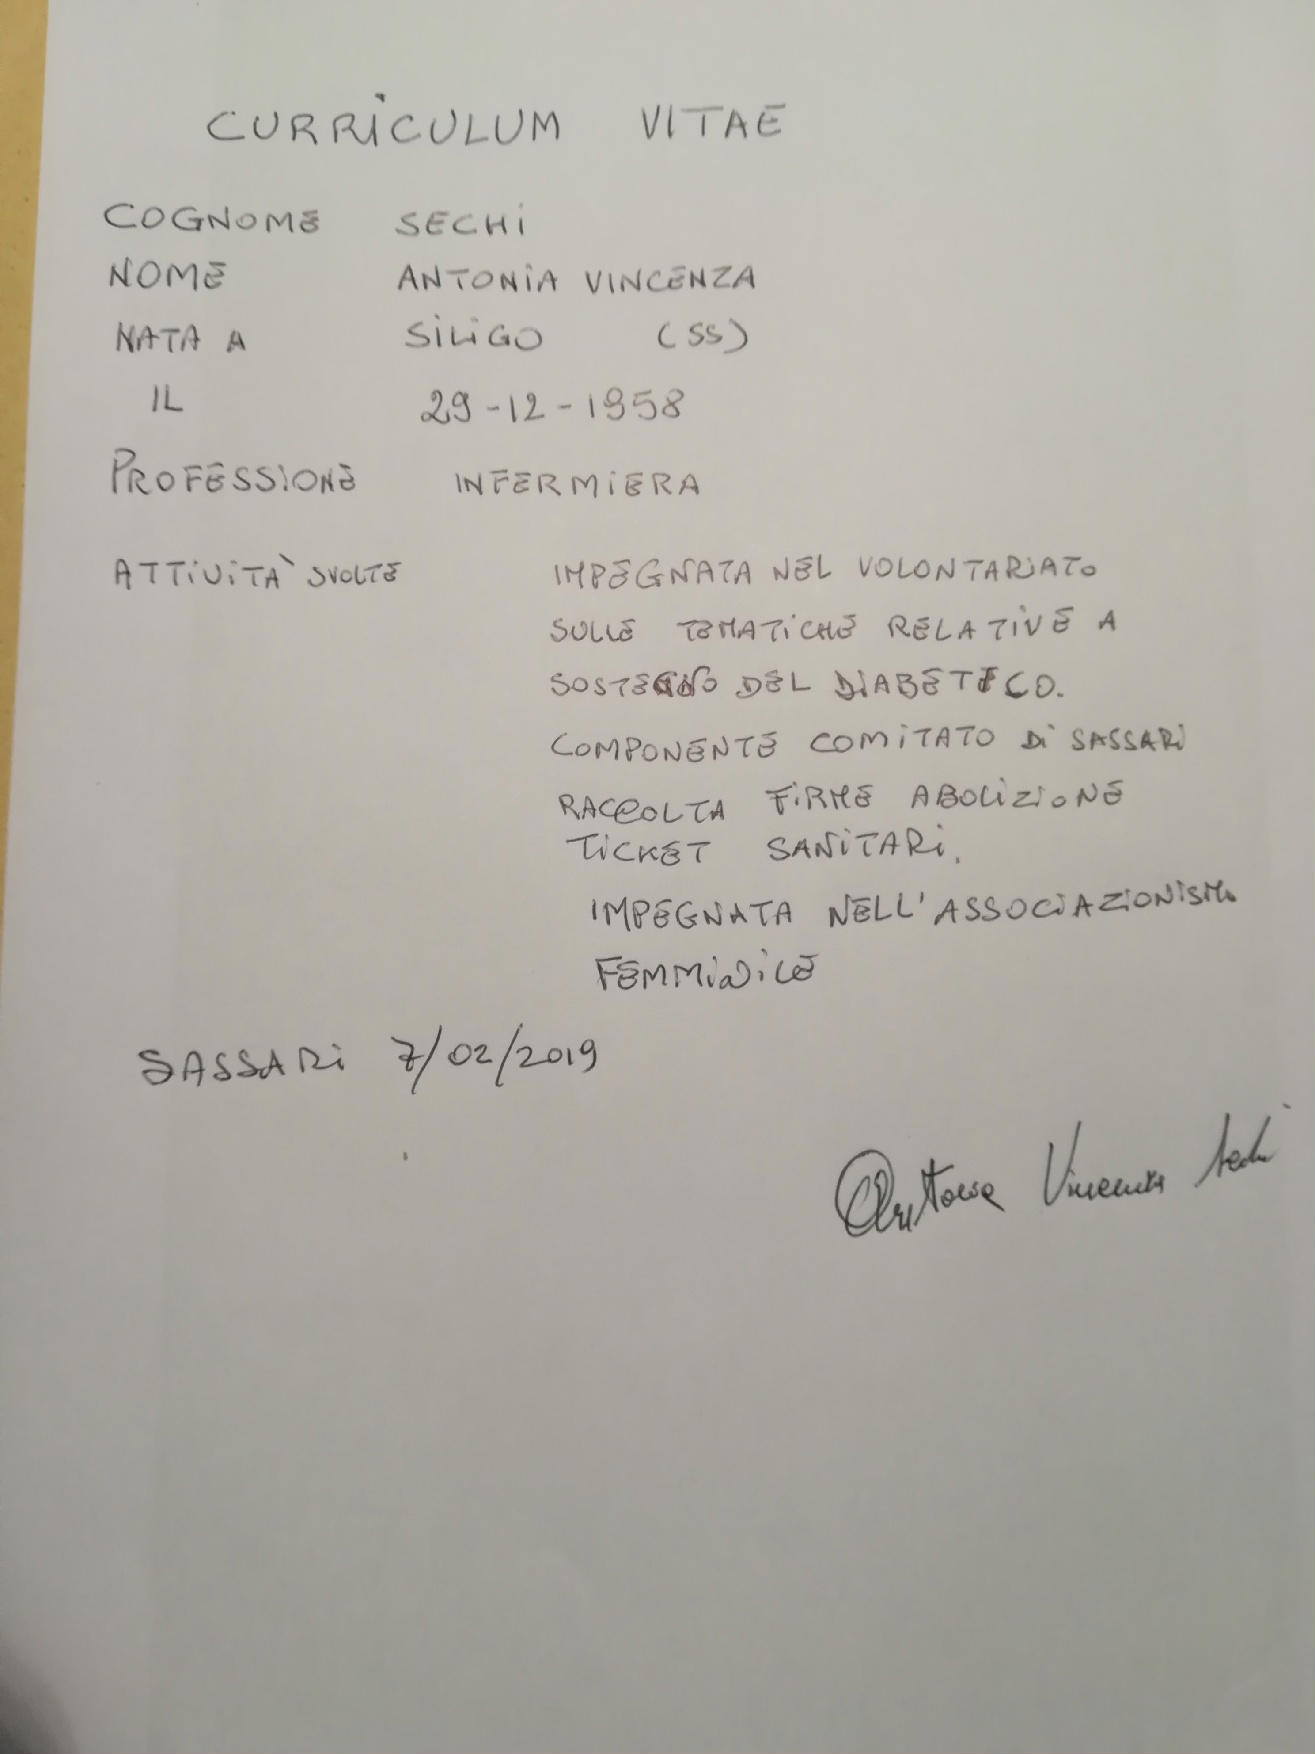 CURRICULUM VITAE
COGNOME SECHI
NOME ANTONIA VINCENZA
NATA A SILIGO (SS)
IL 29-12-1958
PROFESSIONE INFERMIERA
ATTIVITÀ SVOLTE IMPEGNATA NEL VOLONTARIATO
SULLE TEMATICHE RELATIVE A
SOSTEGNO DEL DIABETICO.
COMPONENTE COMITATO DI SASSARI
RACCOLTA FIRME ABOLIZIONE
TICKET SANITARI.
IMPEGNATA NELL'ASSOCIAZIONISMO
FEMMINILE
SASSARI 7/02/2019
Antonia Vincenza Sechi